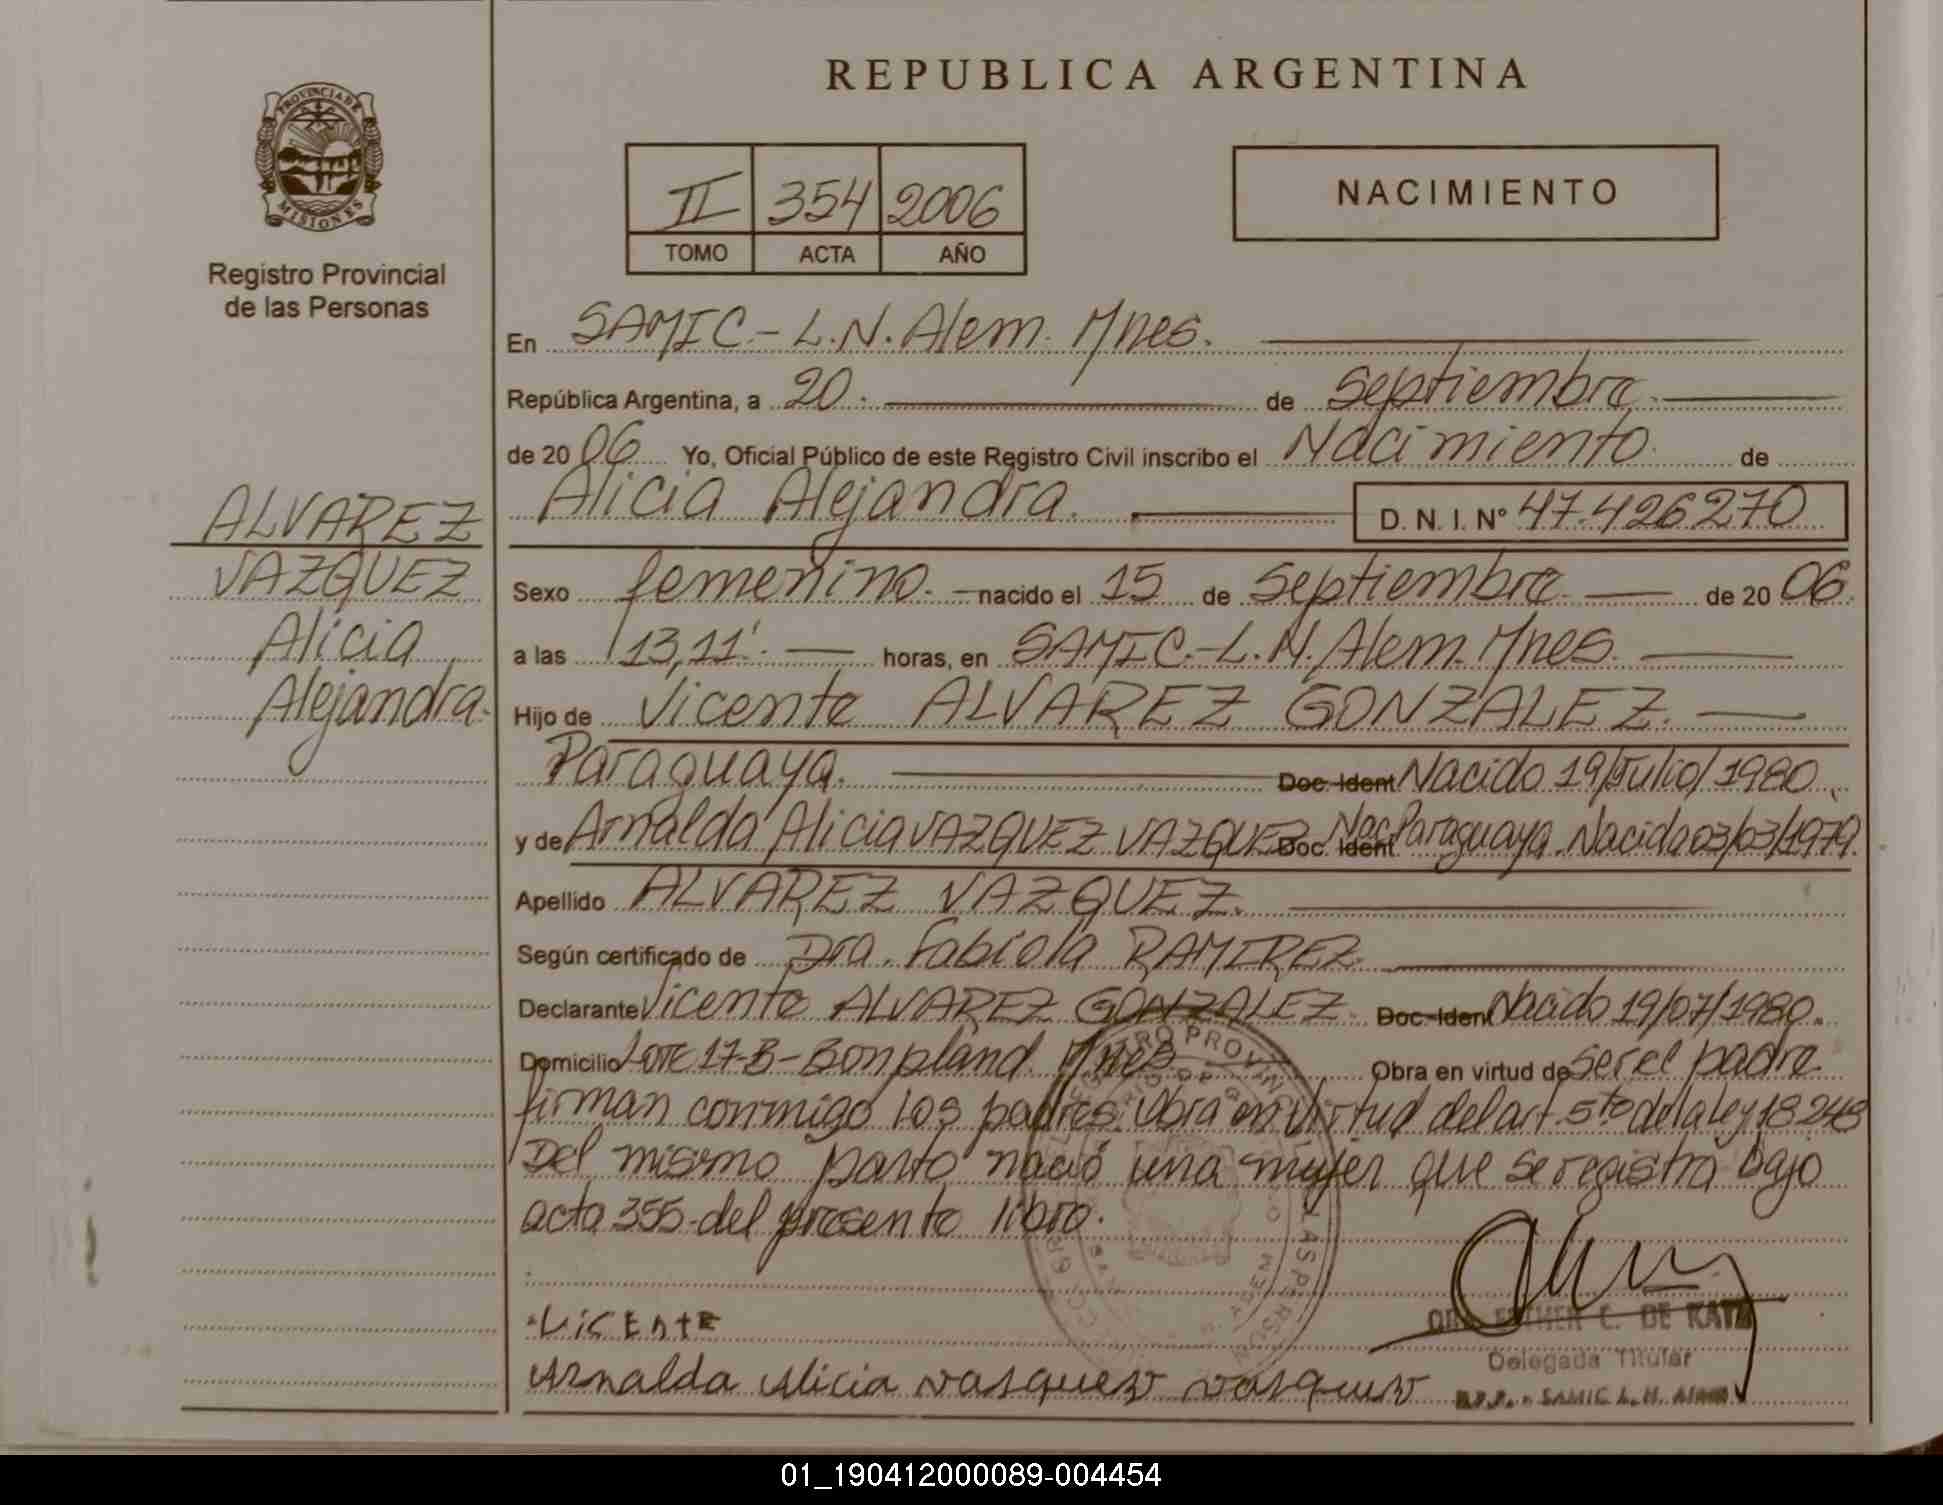 REPUBLICA ARGENTINA
PROVINCIA DE
MISIONES
Registro Provincial
de las Personas
II 354 2006
TOMO ACTA AÑO
NACIMIENTO
En SAMIC.- L.N. Alem. Mnes.
República Argentina, a 20. de Septiembre
de 2006 Yo, Oficial Público de este Registro Civil inscribo el Nacimiento de
Alicia Alejandra. D. N. I. N° 47.426270
ALVAREZ
VAZQUEZ
Alicia
Alejandra.
Sexo femenino. nacido el 15 de Septiembre de 2006.
a las 13,11'. horas, en SAMIC.-L.N. Alem. Mnes.
Hijo de Vicente ALVAREZ GONZALEZ.
Paraguaya. Doc. Ident Nacido 19/Julio/1980
y de Arnalda Alicia VAZQUEZ VAZQUEZ Doc. Ident Nac. Paraguaya. Nacida 03/03/1979.
Apellido ALVAREZ VAZQUEZ.
Según certificado de Dra. Fabiola RAMIREZ
Declarante Vicente ALVAREZ GONZALEZ. Doc. Ident Nacido 19/07/1980.
Domicilio Lote 17-B-Bonpland. Mnes Obra en virtud de ser el padre.
firman conmigo los padres. Obra en virtud del art 5to de la ley 18248
Del mismo parto nació una mujer que se registra bajo
acta 355-del presente libro.
VICENTE
Arnalda Alicia vasquez vasquez
ESTHER C. DE KATZ
Delegada Titular
SAMIC L. N. ALEM
01_190412000089-004454